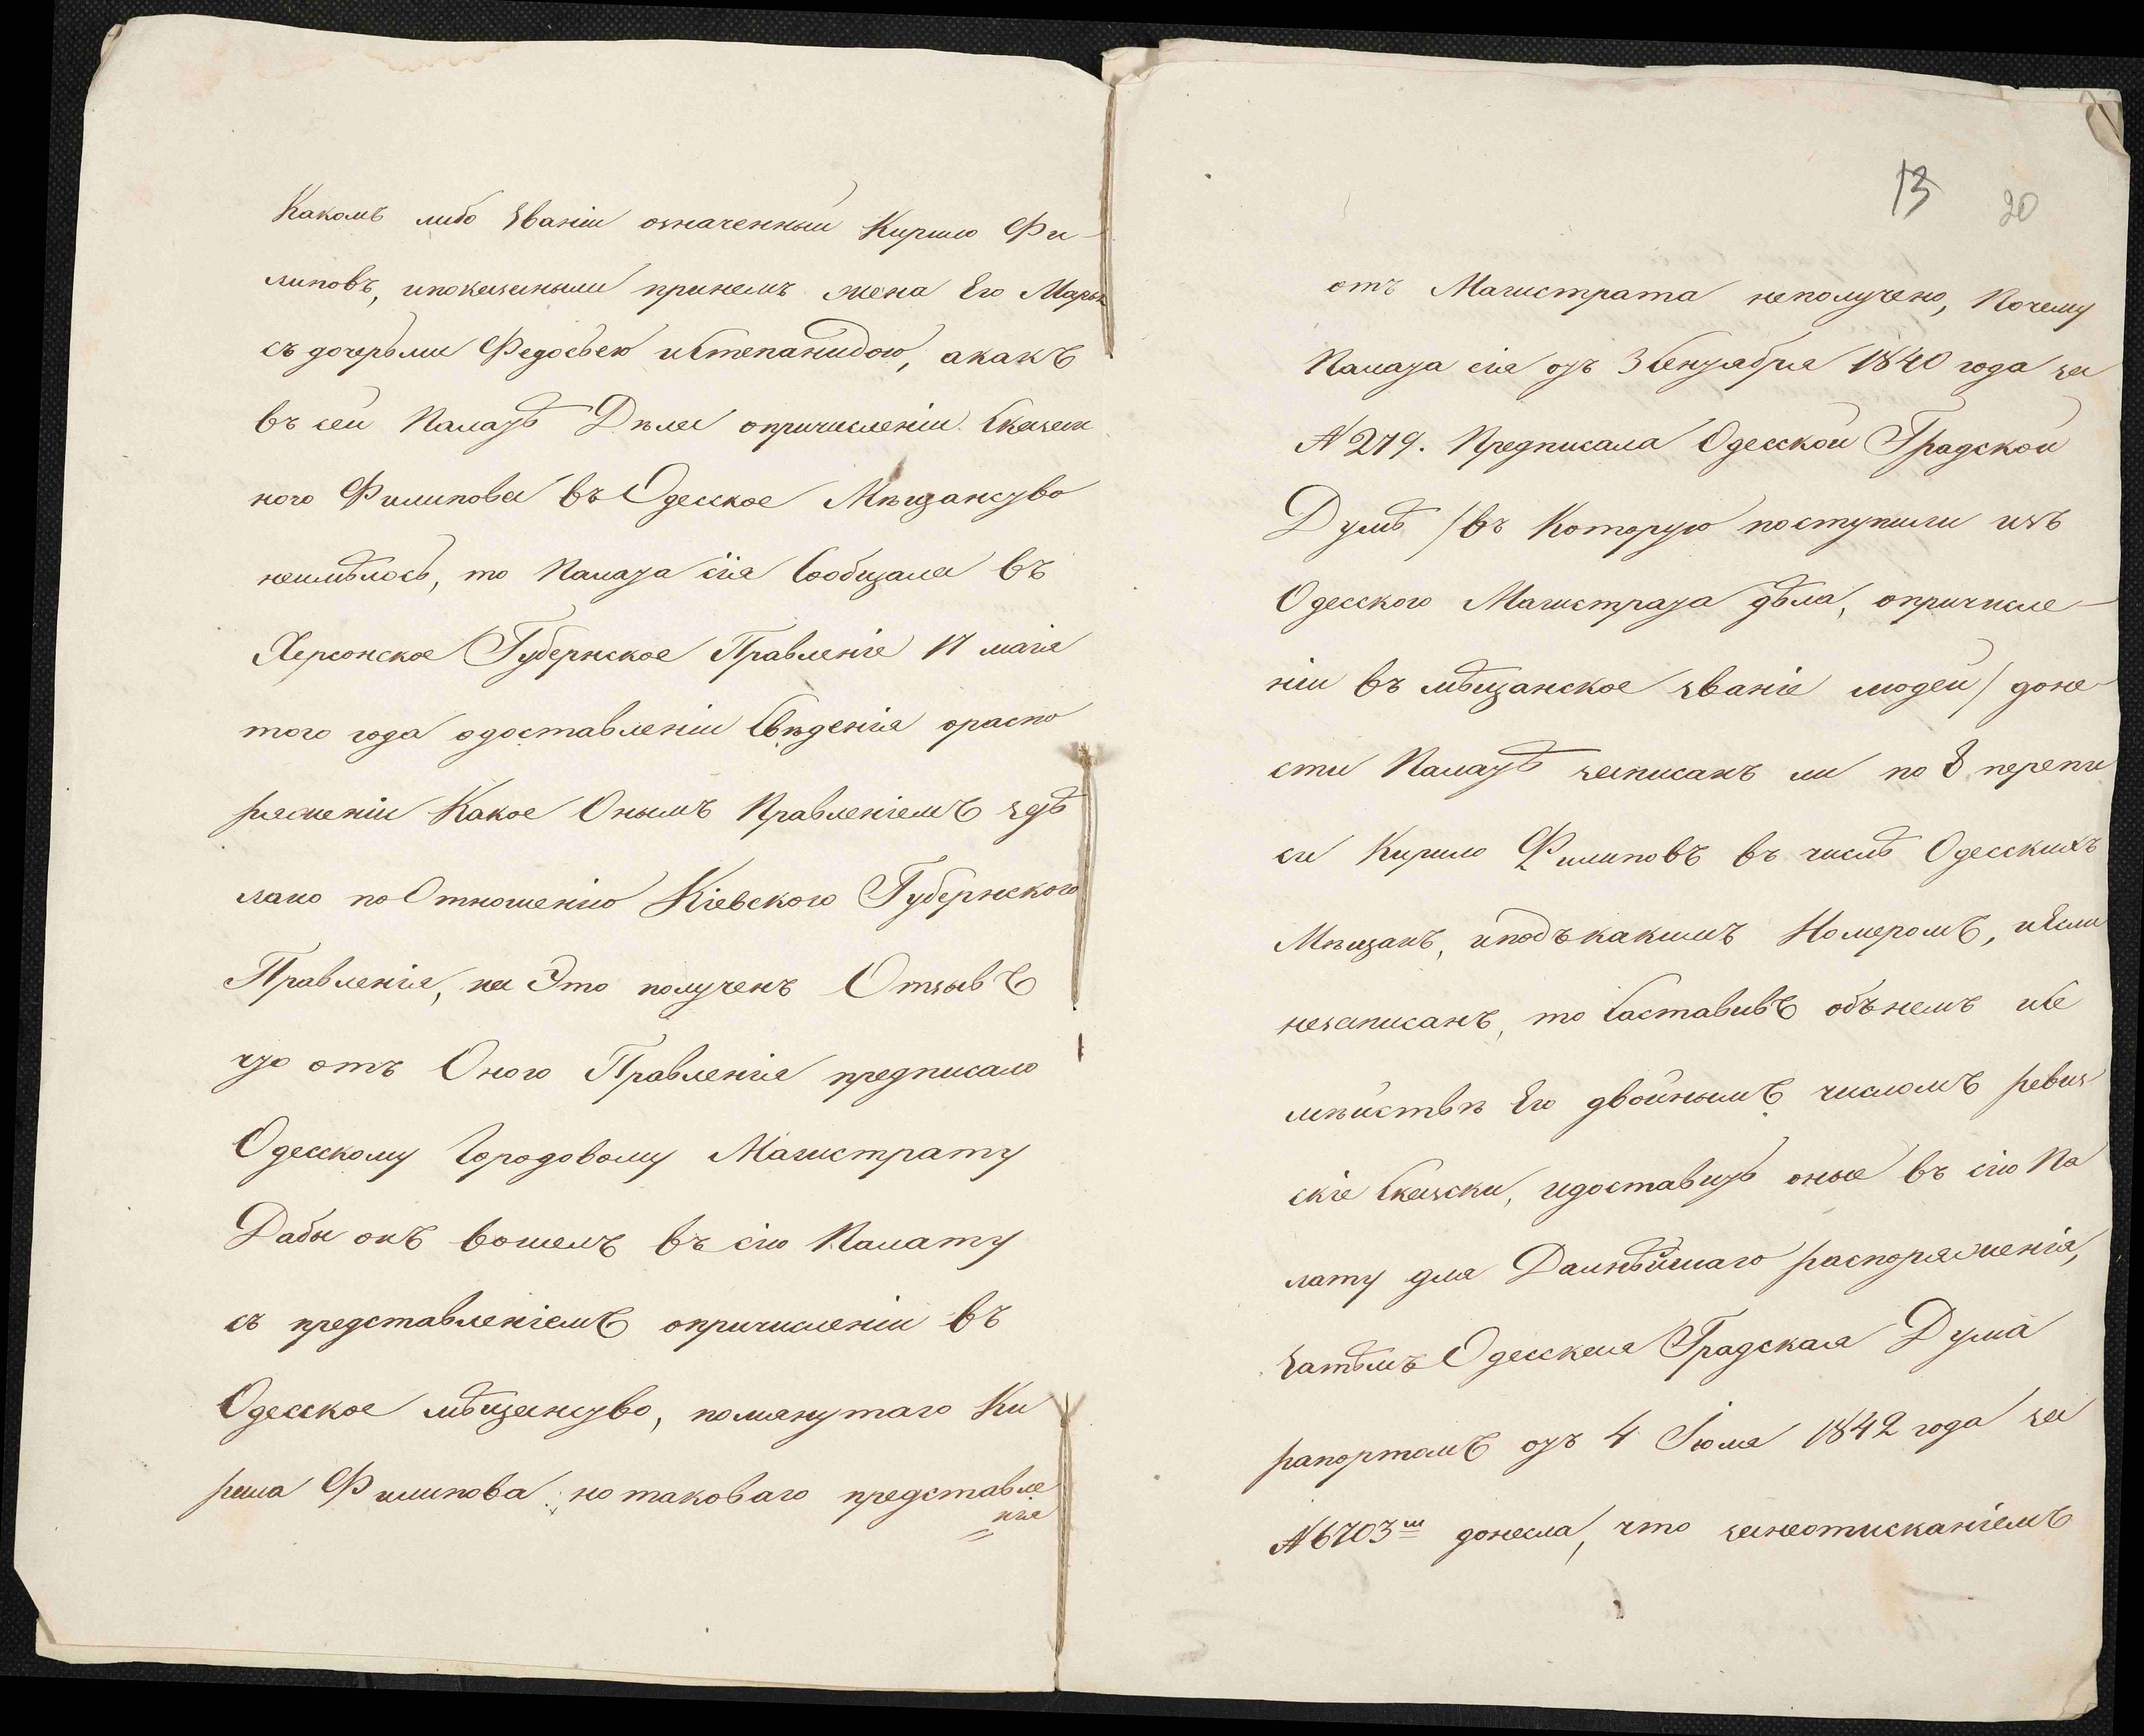 Какомъ либо званіи означенный Кирило Фи-
липовъ, ипоказаныи принемъ жена Его Марья
съ дочерьми Федосьею иСтепанидою, акакъ
въ сей Палатѣ Дѣла опричисленіи Сказан
ного Филипова въ Одесское Мѣщанство
неимѣлось, то Палата сія Сообщала въ
Херсонское Губернское Правленіе 17 маія
того года одоставленіи Свѣденія ораспо
ряженіи Какое Онымъ Правленіемъ здѣ
лано по Отношенію Кіевского Губернского
Правленія, на Это полученъ Отзывъ
что отъ Оного Правленія предписано
Одесскому Городовому Магистрату
Дабы онъ вошелъ въ сію Палату
съ представленіемъ опричисленіи въ
Одесское мѣщанство, помянутаго Ки
рила Филипова но таковаго представле
нія
13 20
отъ Магистрата неполучено, Почему
Палата сія отъ 3 Сентября 1840 года за
№ 279. Предписала Одесской Градской
Думѣ /въ Которую поступили изъ
Одесского Магистрата дѣла, опричисле-
ніи въ мѣщанское званіе людей/ доне
сти Палатѣ записанъ ли по 8 перепи
си Кирило Филиповъ въ числѣ Одесскихъ
Мѣщанъ, иподъ какимъ Номеромъ, иЕсли
незаписанъ, то Саставивъ объ немъ иСе
мѣйствѣ Его двойнымъ числомъ ревиз
скіе Сказски, идоставить оные въ сію Па
лату для Далнѣйшаго распоряженія,
затѣмъ Одесская Градская Дума
рапортомъ отъ 4 Іюля 1842 года за
№ 6703ш донесла, что занеотисканіемъ